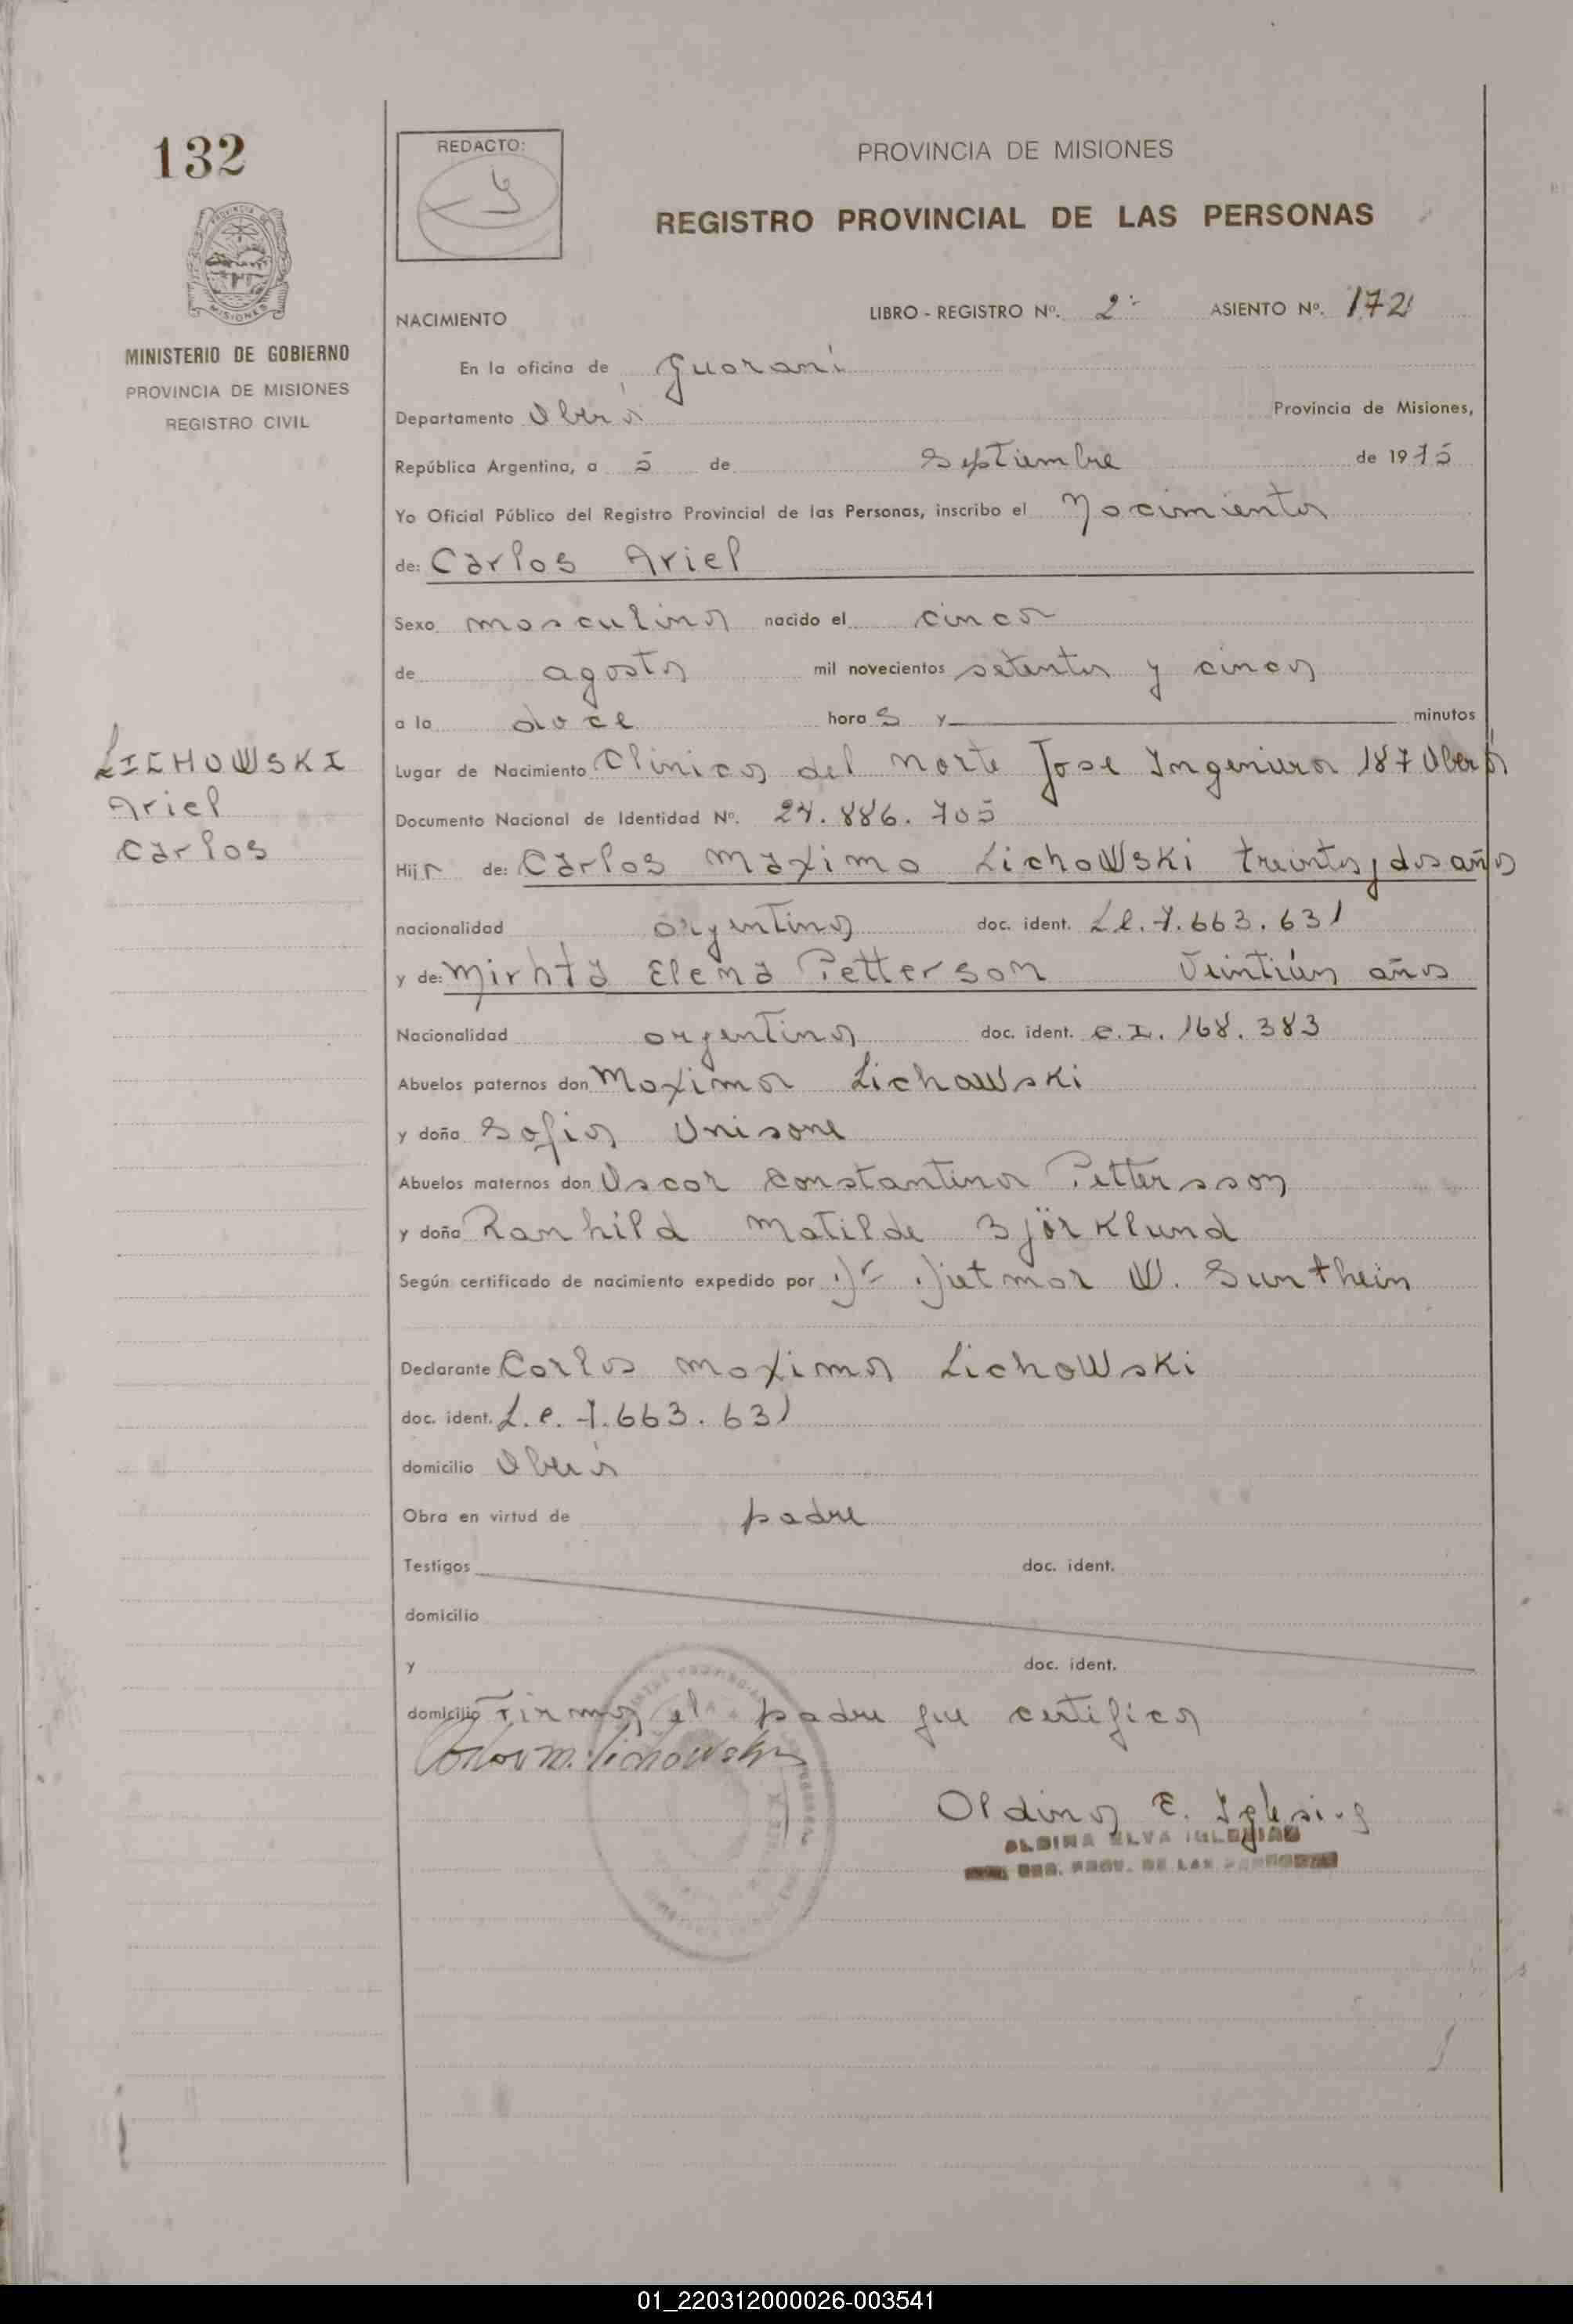 132
REDACTO:
PROVINCIA DE MISIONES
REGISTRO PROVINCIAL DE LAS PERSONAS
PROVINCIA DE
MISIONES
MINISTERIO DE GOBIERNO
PROVINCIA DE MISIONES
REGISTRO CIVIL
NACIMIENTO LIBRO - REGISTRO Nº. 2º ASIENTO Nº. 172
En la oficina de Guarani
Departamento Oberá Provincia de Misiones,
República Argentina, a 5 de Septiembre de 1975
Yo Oficial Público del Registro Provincial de las Personas, inscribo el Nacimiento
de: Carlos Ariel
Sexo masculino nacido el cinco
de agosto mil novecientos setenta y cinco
a la doce hora s y minutos
LICHOWSKI
Ariel
Carlos
Lugar de Nacimiento Clinica del norte Jose Ingeniero 187 Oberá
Documento Nacional de Identidad Nº. 24.886.705
Hijo de: Carlos Maximo LichoWski treinta y dos años
nacionalidad argentina doc. ident. L.e. 7.663.631
y de: Mirhta Elena Petterson Veintiún años
Nacionalidad argentina doc. ident. C.I. 168.383
Abuelos paternos don Maximo LichoWski
y doña Sofia Unisone
Abuelos maternos don Oscar Constantino Pettersson
y doña Ranhild Matilde Björklund
Según certificado de nacimiento expedido por Dr Dietmar W. Sunthein
Declarante Carlos Maximo LichoWski
doc. ident. L.e. 7.663.631
domicilio Oberá
Obra en virtud de padre
Testigos doc. ident.
domicilio
y doc. ident.
domicilio Firma el padre que certifica
Carlos M. Lichowski
Aldina E. Iglesias
ALDINA ELVA IGLESIAS
REG. PROV. DE LAS PERSONAS
01_220312000026-003541